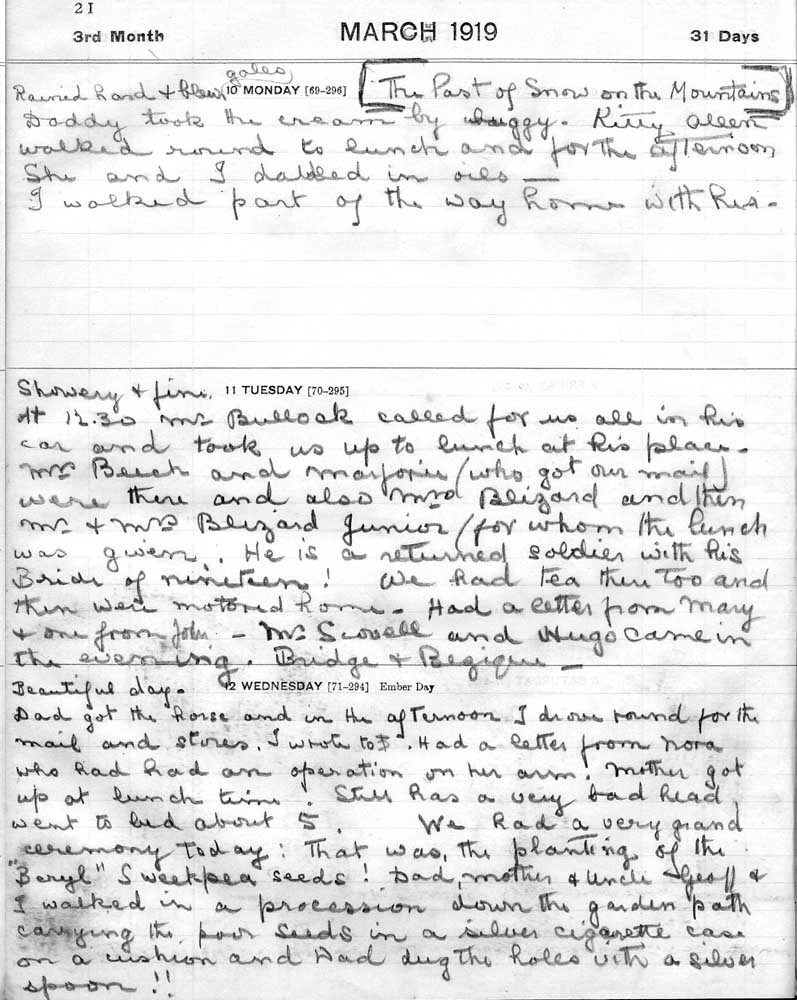 21
3rd Month MARCH 1919 31 Days
gales
Rained hard & blew 10 MONDAY [69-296] [The Past of Snow on the Mountains]
Daddy took the cream by buggy. Kitty Allen
walked round to lunch and for the afternoon
She and I dabbled in oils —
I walked part of the way home with her.
Showery & fine. 11 TUESDAY [70-295]
At 12.30 Mr Bullock called for us all in his
car and took us up to lunch at his place.
Mrs Beech and Marjorie (who got our mail)
were there and also Mrs Blizard and then
Mr & Mrs Blizard Junior (for whom the lunch
was given. He is a returned soldier with his
Bride of nineteen! We had tea there too and
then were motored home. Had a letter from Mary
& one from John – Mr Scovell and Hugo came in
the evening. Bridge & Bezique —
Beautiful day. 12 WEDNESDAY [71-294] Ember Day
Dad got the horse and in the afternoon I drove round for the
mail and stores. I wrote to J. Had a letter from Nora
who had had an operation on her arm. Mother got
up at lunch time. Still has a very bad head,
went to bed about 5. We had a very grand
ceremony today: That was, the planting of the
"Beryl" Sweetpea seeds! Dad, mother & Uncle Geoff &
I walked in a procession down the garden path
carrying the poor seeds in a silver cigarette case
on a cushion and Dad dug the holes with a silver
spoon!!